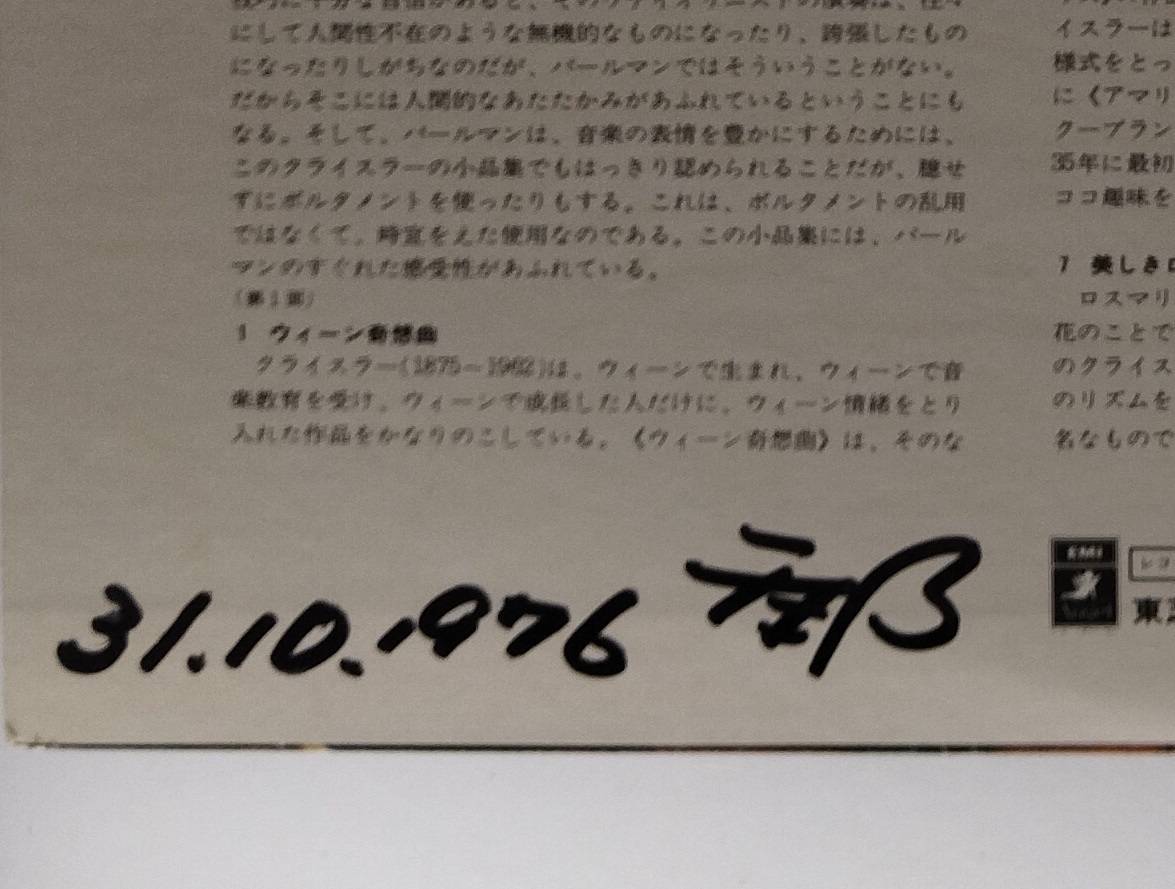 にして人間性不在のような無機的なものになったり、誇張したもの
になったりしがちなのだが、パールマンではそういうことがない。
だからそこには人間的なあたたかみがあふれているということにも
なる。そして、パールマンは、音楽の表情を豊かにするためには、
このクライスラーの小品集でもはっきり認められることだが、臆せ
ずにポルタメントを使ったりもする。これは、ポルタメントの乱用
ではなくて、時宜をえた使用なのである。この小品集には、パール
マンのすぐれた感受性があふれている。
(第1面)
1 ウィーン奇想曲
クライスラー(1875−1962)は、ウィーンで生まれ、ウィーンで音
楽教育を受け、ウィーンで成長した人だけに、ウィーン情緒をとり
入れた作品をかなりのこしている。《ウィーン奇想曲》は、そのな
イスラーは
様式をとっ
に《アマリ
クープラン
35年に最初
ココ趣味を
7 美しきロ
ロスマリ
花のことで
のクライス
のリズムを
名なもので
31.10.1976
EMI
レコ
東芝